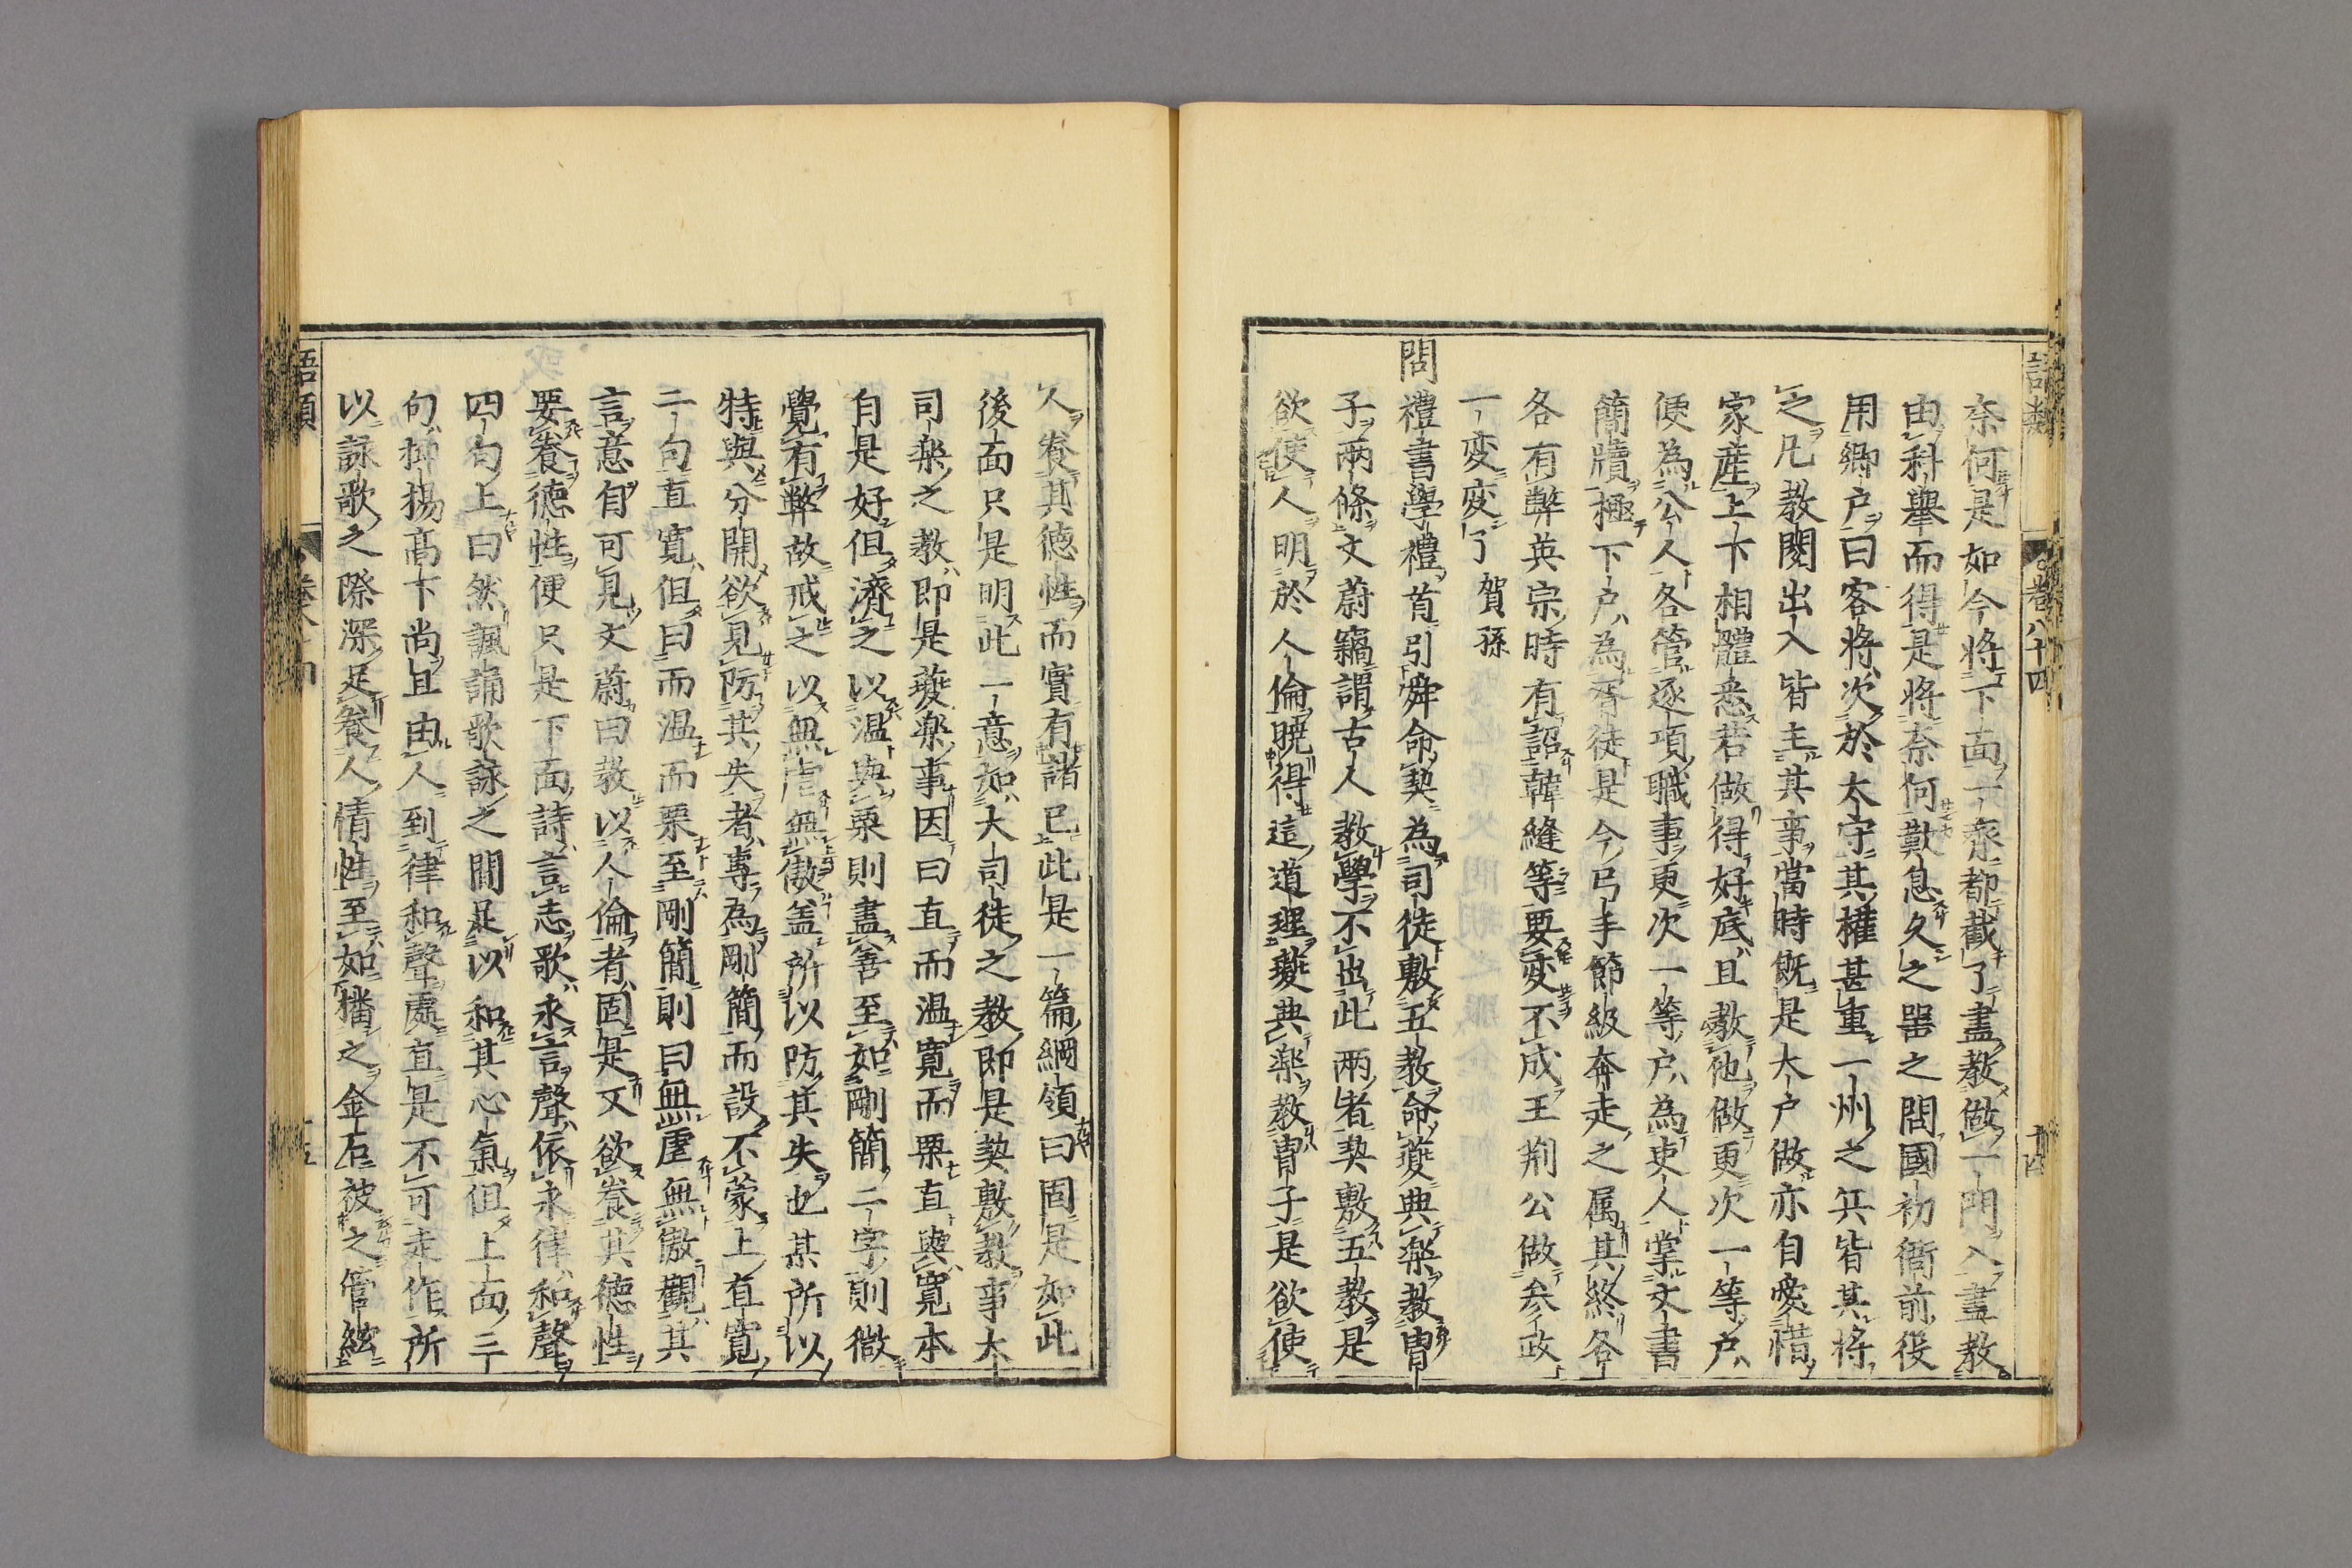 語類 卷八十四 十四
奈何是如今將下面一齊都截了盡教做一門入盡教
由科舉而得是將奈何歎息久之器之問國初衙前役
用鄉户曰客將次於太守其權甚重一州之兵皆其將
之凡教閱出入皆主其事當時既是大户做亦自愛惜
家産上下相體悉若做得好底且教他做更次一等户
便為公人各管逐項職事更次一等户為吏人掌文書
簡牘極下户為胥徒是今弓手節級奔走之属其終各
各有弊英宗時有詔韓縫等要変不成王荆公做参政
一変変了 賀孫
問禮書學禮首引舜命契為司徒敷五教命夔典楽教冑
子兩條文蔚竊謂古人教學不出此兩者契敷五教是
欲使人明於人倫曉得這道理夔典楽教冑子是欲使
人養其德性而實有諸已此是一篇綱領曰固是如此
後面只是明此一意如大司徒之教即是契敷教事大
司楽之教即是夔楽事因曰直而溫寛而栗直與寛本
自是好但濟之以溫與栗則盡善至如剛簡二字則微
覺有弊故戒之以無虐無傲盖所以防其失也某所以
特與分開欲見防其失者専為剛簡而設不蒙上直寛
二句直寛但曰而溫而栗至剛簡則曰無虐無傲觀其
言意自可見文蔚曰教以人倫者固是又欲養其德性
要養德性便只是下面詩言志歌永言聲依永律和聲
四句上曰然諷誦歌詠之間足以和其心氣但上面三
句抑揚高下尚且由人到律和聲處直是不可走作所
以詠歌之際深足養人情性至如播之金石被之管絃
語類